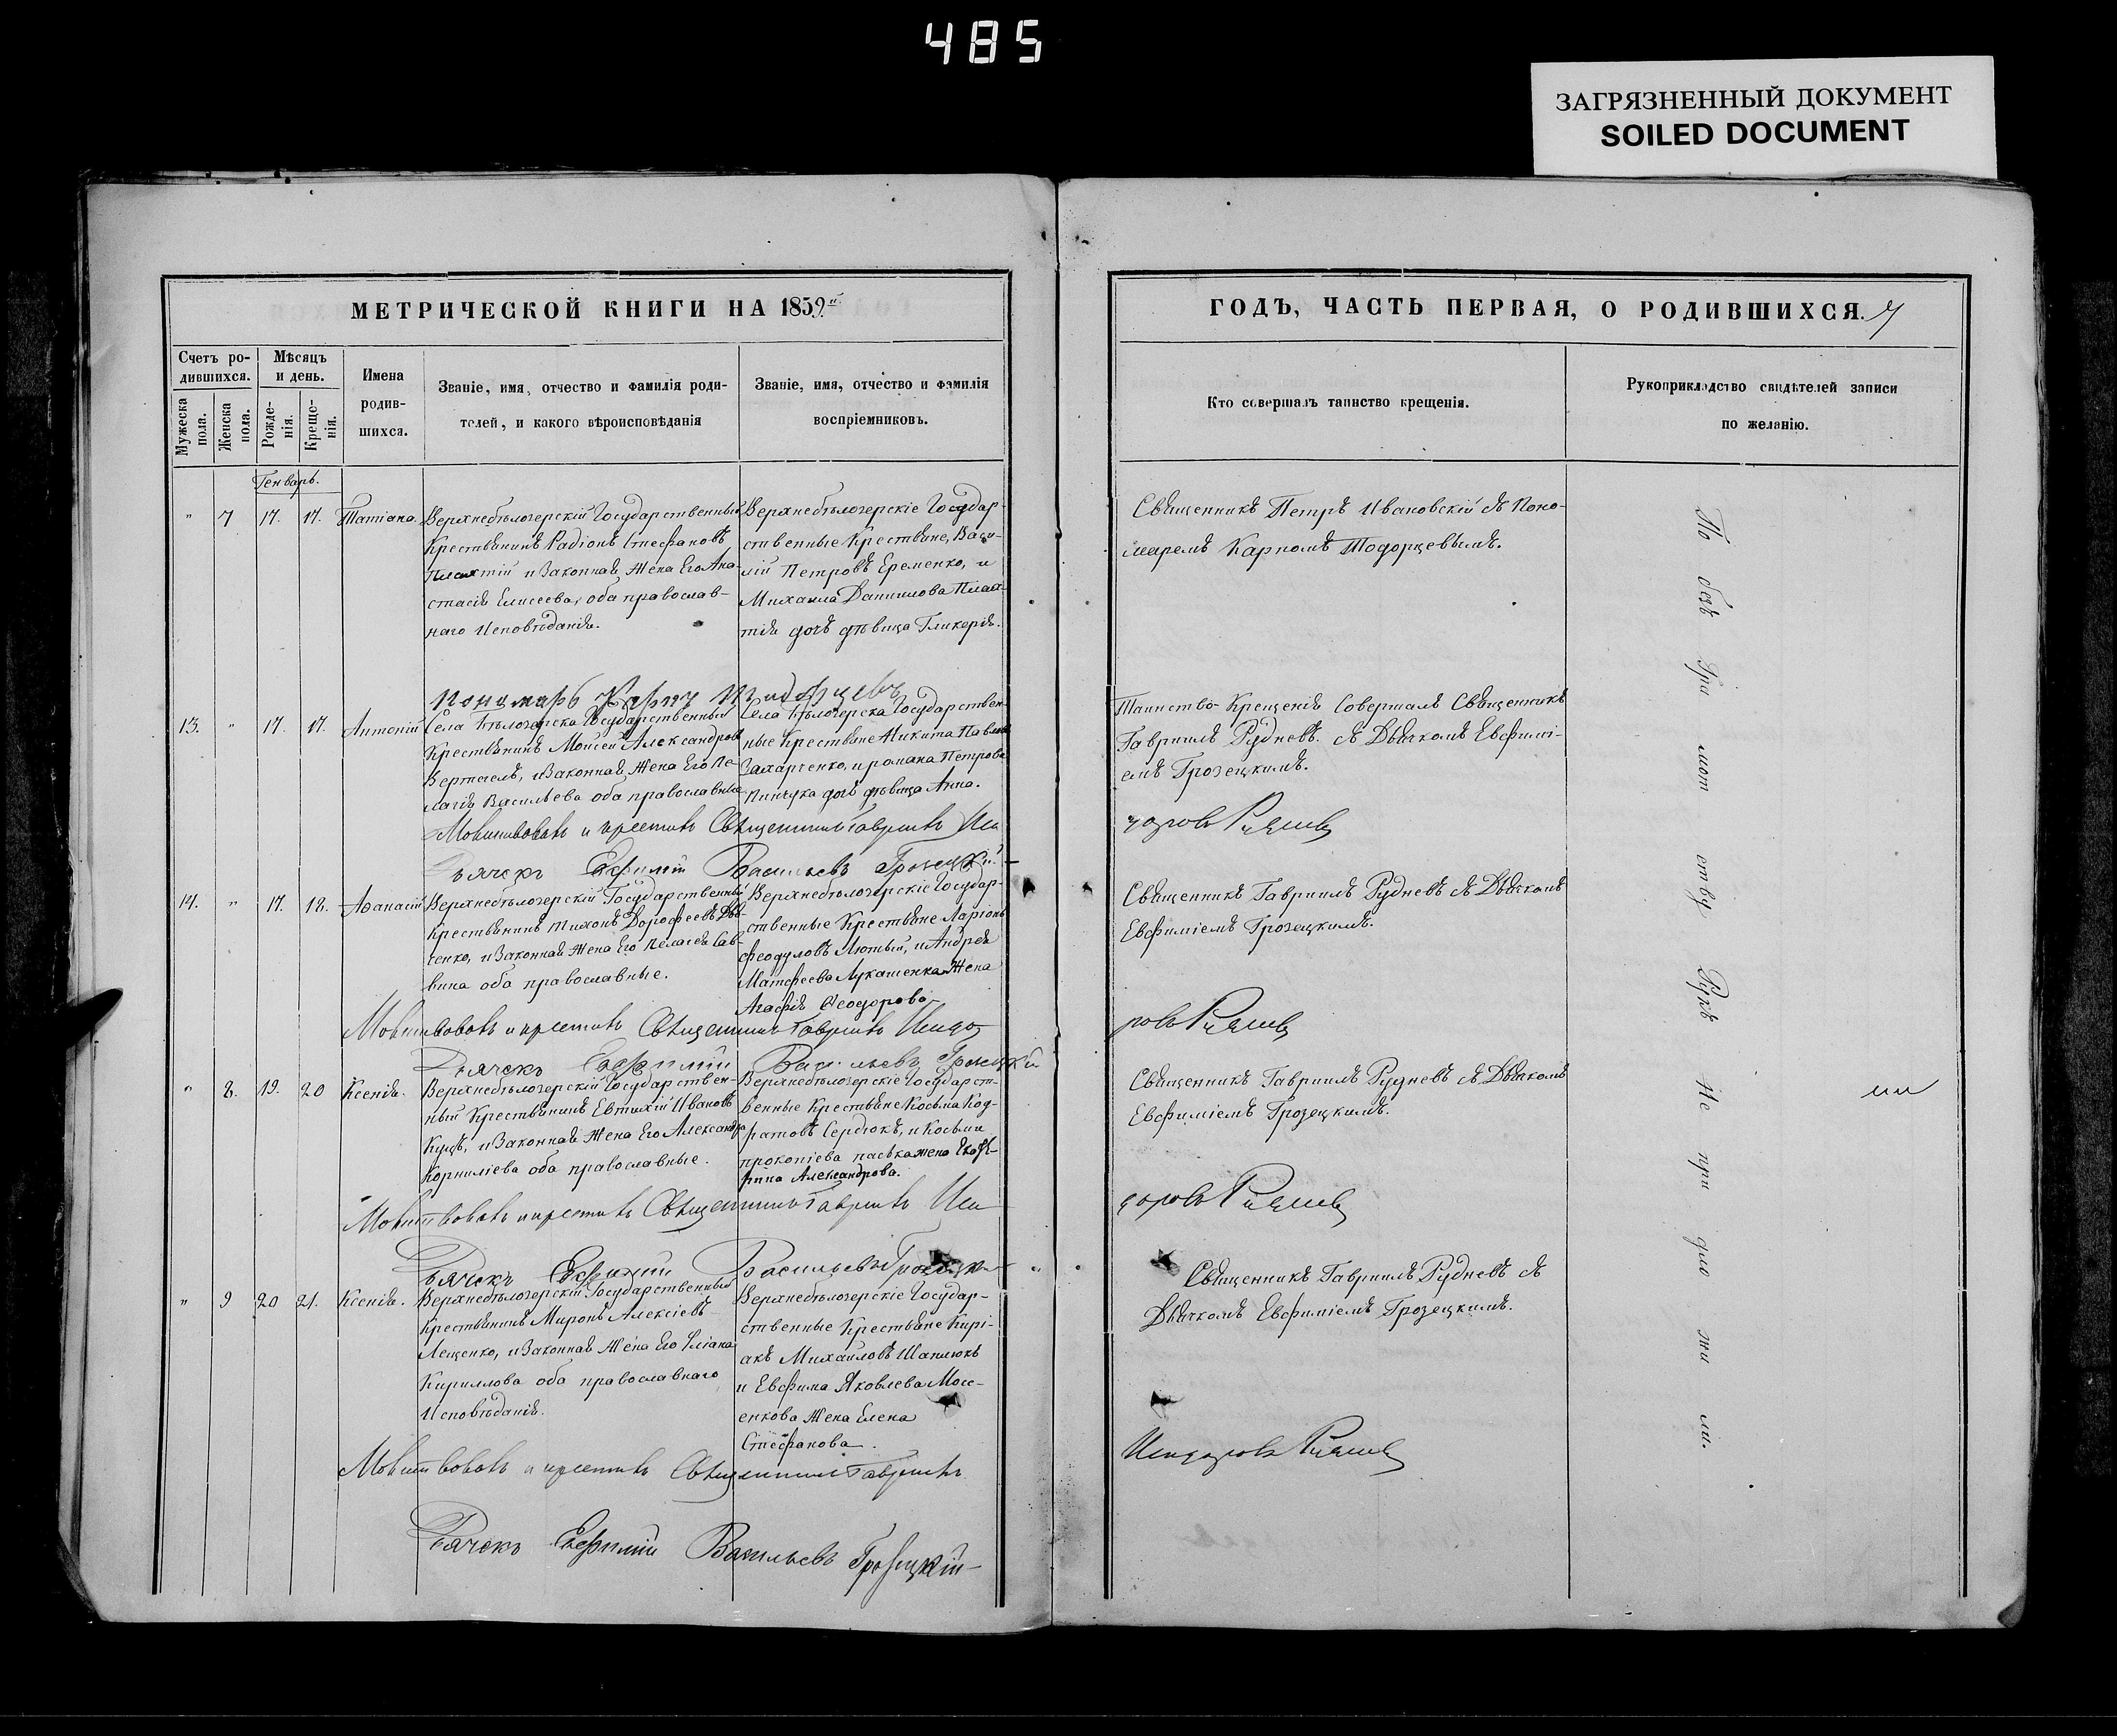 485
ЗАГРЯЗНЕННЫЙ ДОКУМЕНТ
SOILED DOCUMENT
МЕТРИЧЕСКОЙ КНИГИ НА 1859
Счетъ ро-
дившихся.
Мужеска
пола.
Женска
пола.
Мѣсяцъ
и день.
Рожде-
нія.
Креще-
нія.
Имена
родив-
шихся.
Званіе, имя, отчество и фамилія роди-
телей, и какого вѣроисповѣданія
Званіе, имя, отчество и фамилія
воспріемниковъ.
Генварь.
" 7 17. 17. Татіана.
Верхнебѣлозерскій Государственный
Крестьянинъ Радіонъ Стефановъ
и Законная Жена Его Ана-
стасія Елисеева, оба православ-
наго Исповѣданія.
Верхнебѣлозерскіе Государ-
ственные Крестьяне, Васи-
лій Петровъ Еременко, и
Михаила Даниилова Плах-
тія дочь дѣвица Гликерія.
Пономарь Карпъ
13. " 17. 17. Антоній
Села Бѣлозерска Государственный
Крестьянинъ Моѵсей Александровъ
и Законная Жена Его Пе-
лагія Васильева оба православные
Села Бѣлозерска Государствен-
ные Крестьяне Никита Павловъ
Захарченко, и романа Петрова
Пинчука дочь дѣвица Анна.
Молитвовалъ и крестилъ Священникъ Гавриилъ Иси
Дячекъ Евфимій Васильевъ Грозецкій
14. " 17. 18. Аѳанасій
Верхнебѣлозерскій Государственный
Крестьянинъ Тихонъ Дорофеевъ
ченко, и Законная Жена Его Пелагея Сав-
вина оба православные.
Верхнебѣлозерскіе Государ-
ственные Крестьяне Ларіонъ
феодуловъ Лютый, и Андрея
Матфеева Лукашенка Жена
Агафія Ѳеодорова
Молитвовалъ и крестилъ Священникъ Гавриилъ Исидо
Дячекъ Евфимій Васильевъ Грозецкій
" 8. 19. 20 Ксенія.
Верхнебѣлозерскій Государствен-
ный Крестьянинъ Евтихій Ивановъ
Куцъ, и Законная Жена Его Александра
Корниліева оба православные.
Верхнебѣлозерскіе Государст-
венные Крестьяне Косьма Код-
ратовъ Сердюкъ, и Косьми
прокопіева паська жена Екате-
рина Александрова.
Молитвовалъ и крестилъ Священникъ Гавриилъ Иси
Дячекъ Евфимій Васильевъ Грозецкій
" 9 20 21. Ксенія.
Верхнебѣлозерскій Государственный
Крестьянинъ Миронъ Алексіевъ
Лещенко, и Законная Жена Его Уліана
Кириллова оба православнаго
Исповѣданія.
Верхнебѣлозерскіе Государ-
ственные Крестьяне Кирі-
акъ Михайловъ Шаплюкъ
и Евфима Яковлева Мосе-
енкова Жена Елена
Стефанова.
Молитвовалъ и крестилъ Священникъ Гавриилъ
Дячекъ Евфимій Васильевъ Грозецкій
ГОДЪ, ЧАСТЬ ПЕРВАЯ, О РОДИВШИХСЯ. 7
Кто совершалъ таинство крещенія.
Рукоприкладство свидѣтелей записи
по желанію.
Священникъ Петръ Ивановскій съ Поно-
маремъ Карпомъ Тодорцевымъ.
Таинство Крещенія Совершалъ Священникъ
Гавриилъ Рудневъ. съ Дьячкомъ Евфимі-
емъ Грозецкимъ.
доровъ Рудневъ
Священникъ Гавриилъ Рудневъ съ Дьячкомъ
Евфиміемъ Грозецкимъ.
ровъ Рудневъ
Священникъ Гавриилъ Рудневъ съ Дьячкомъ
Евфиміемъ Грозецкимъ.
доровъ Рудневъ
Священникъ Гавриилъ Рудневъ съ
Дьячкомъ Евфиміемъ Грозецкимъ.
Исидоровъ Рудневъ